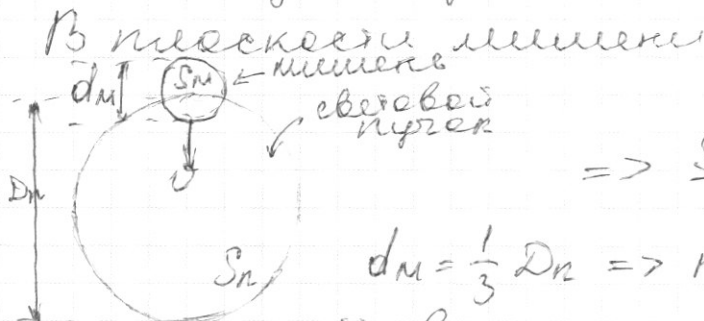 В плоскости мишени
dм Sм мишень
световой
пучок
Dп v => S
Sп dм = 1/3 Dп =>